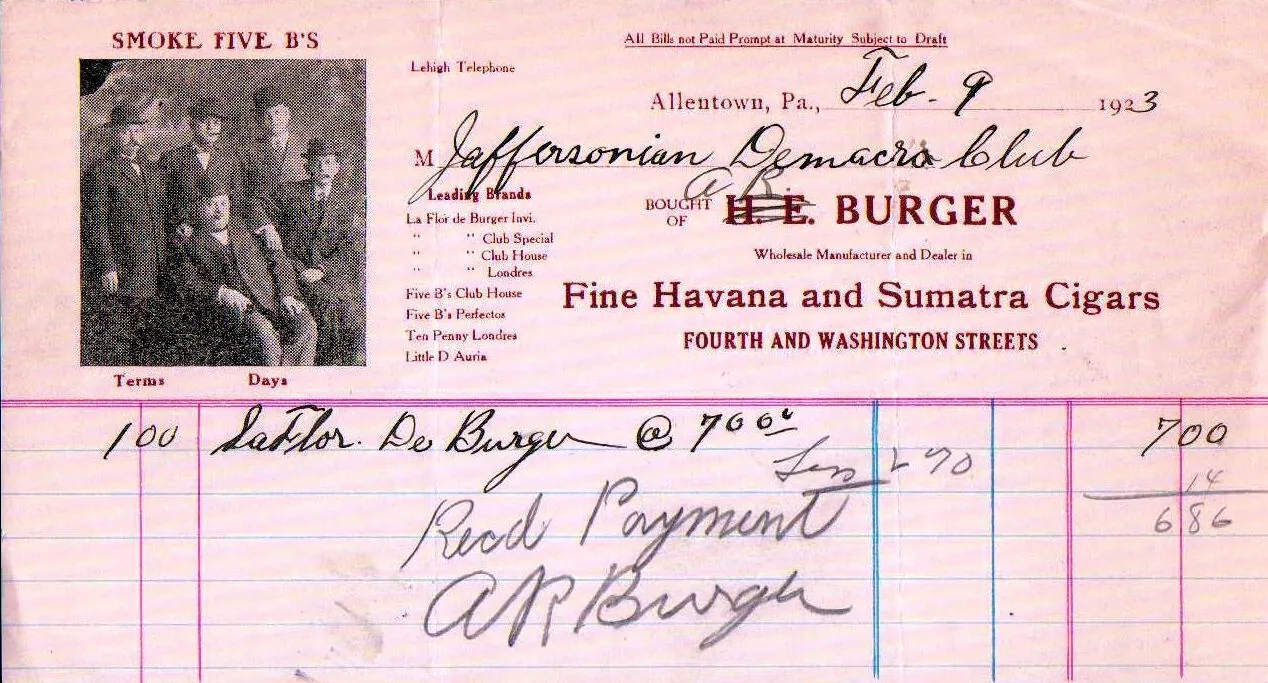 SMOKE FIVE B'S
All Bills not Paid Prompt at Maturity Subject to Draft
Lehigh Telephone
Allentown, Pa., Feb - 9 1923
M Jaffersonian Demacra Club
Leading Brands
La Flor de Burger Invi.
" " Club Special
" " Club House
" " Londres
Five B's Club House
Five B's Perfectos
Ten Penny Londres
Little D Auria
A R.
BOUGHT OF H. E. BURGER
Wholesale Manufacturer and Dealer in
Fine Havana and Sumatra Cigars
FOURTH AND WASHINGTON STREETS
Terms Days
100 LaFlor. De Burger @ 700 700
Less 2 % 14
6 86
Recd Payment
A R Burger